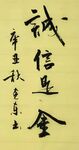 誠信是金
辛丑秋